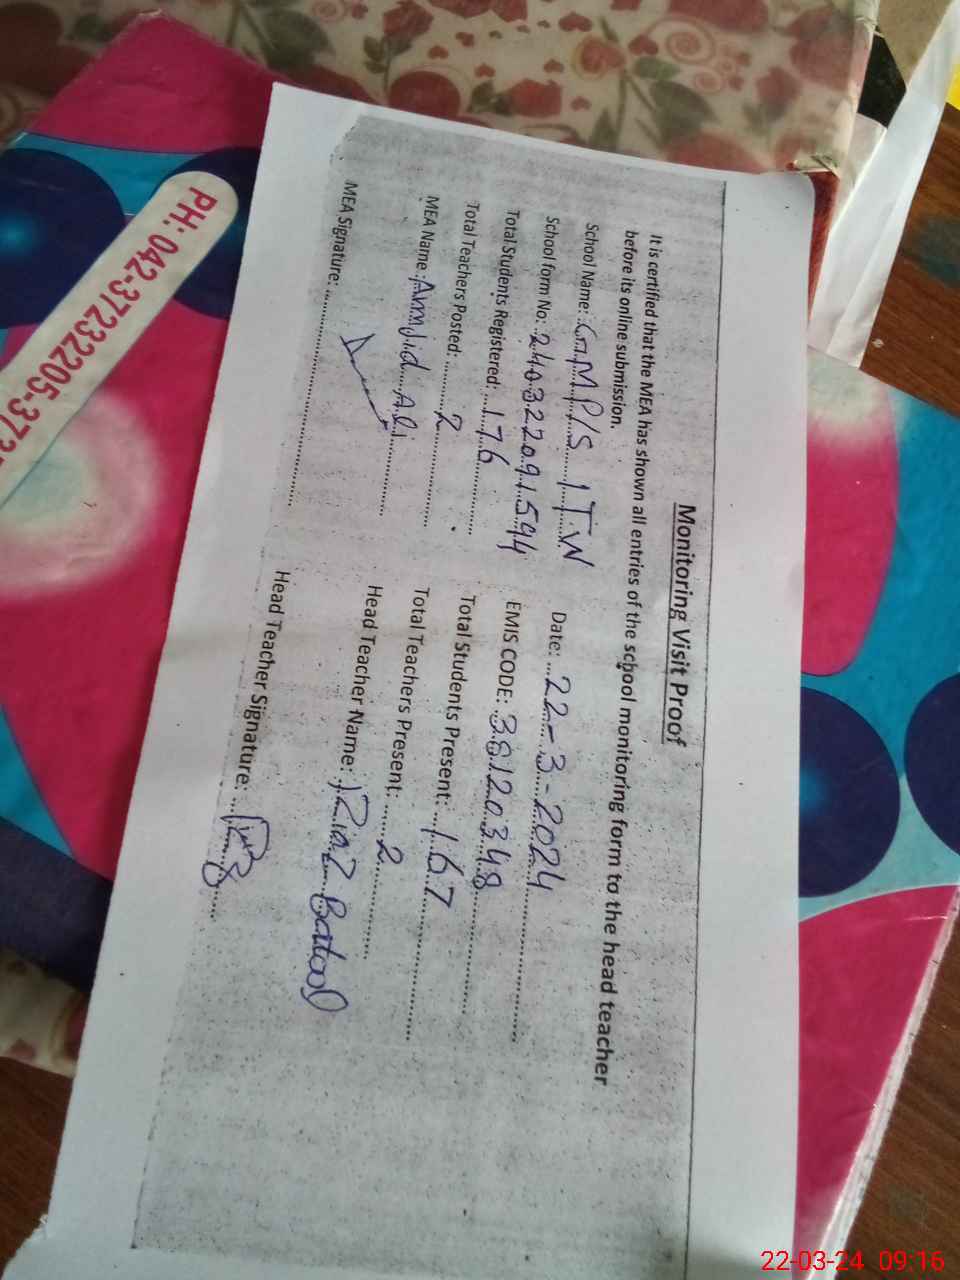 Monitoring Visit Proof
It is certified that the MEA has shown all entries of the school monitoring form to the head teacher
before its online submission.
School Name: G.M.P/S 1 T.W
Date: 22-3-2024
School form No: 240322091594
EMIS CODE: 38120348
Total Students Registered: 176
Total Students Present: 167
Total Teachers Posted: 2
Total Teachers Present: 2
MEA Name: Amjid Ali
Head Teacher Name: Riaz Batool
MEA Signature:
Head Teacher Signature:
PH: 042-37232205-373
22-03-24 09:16